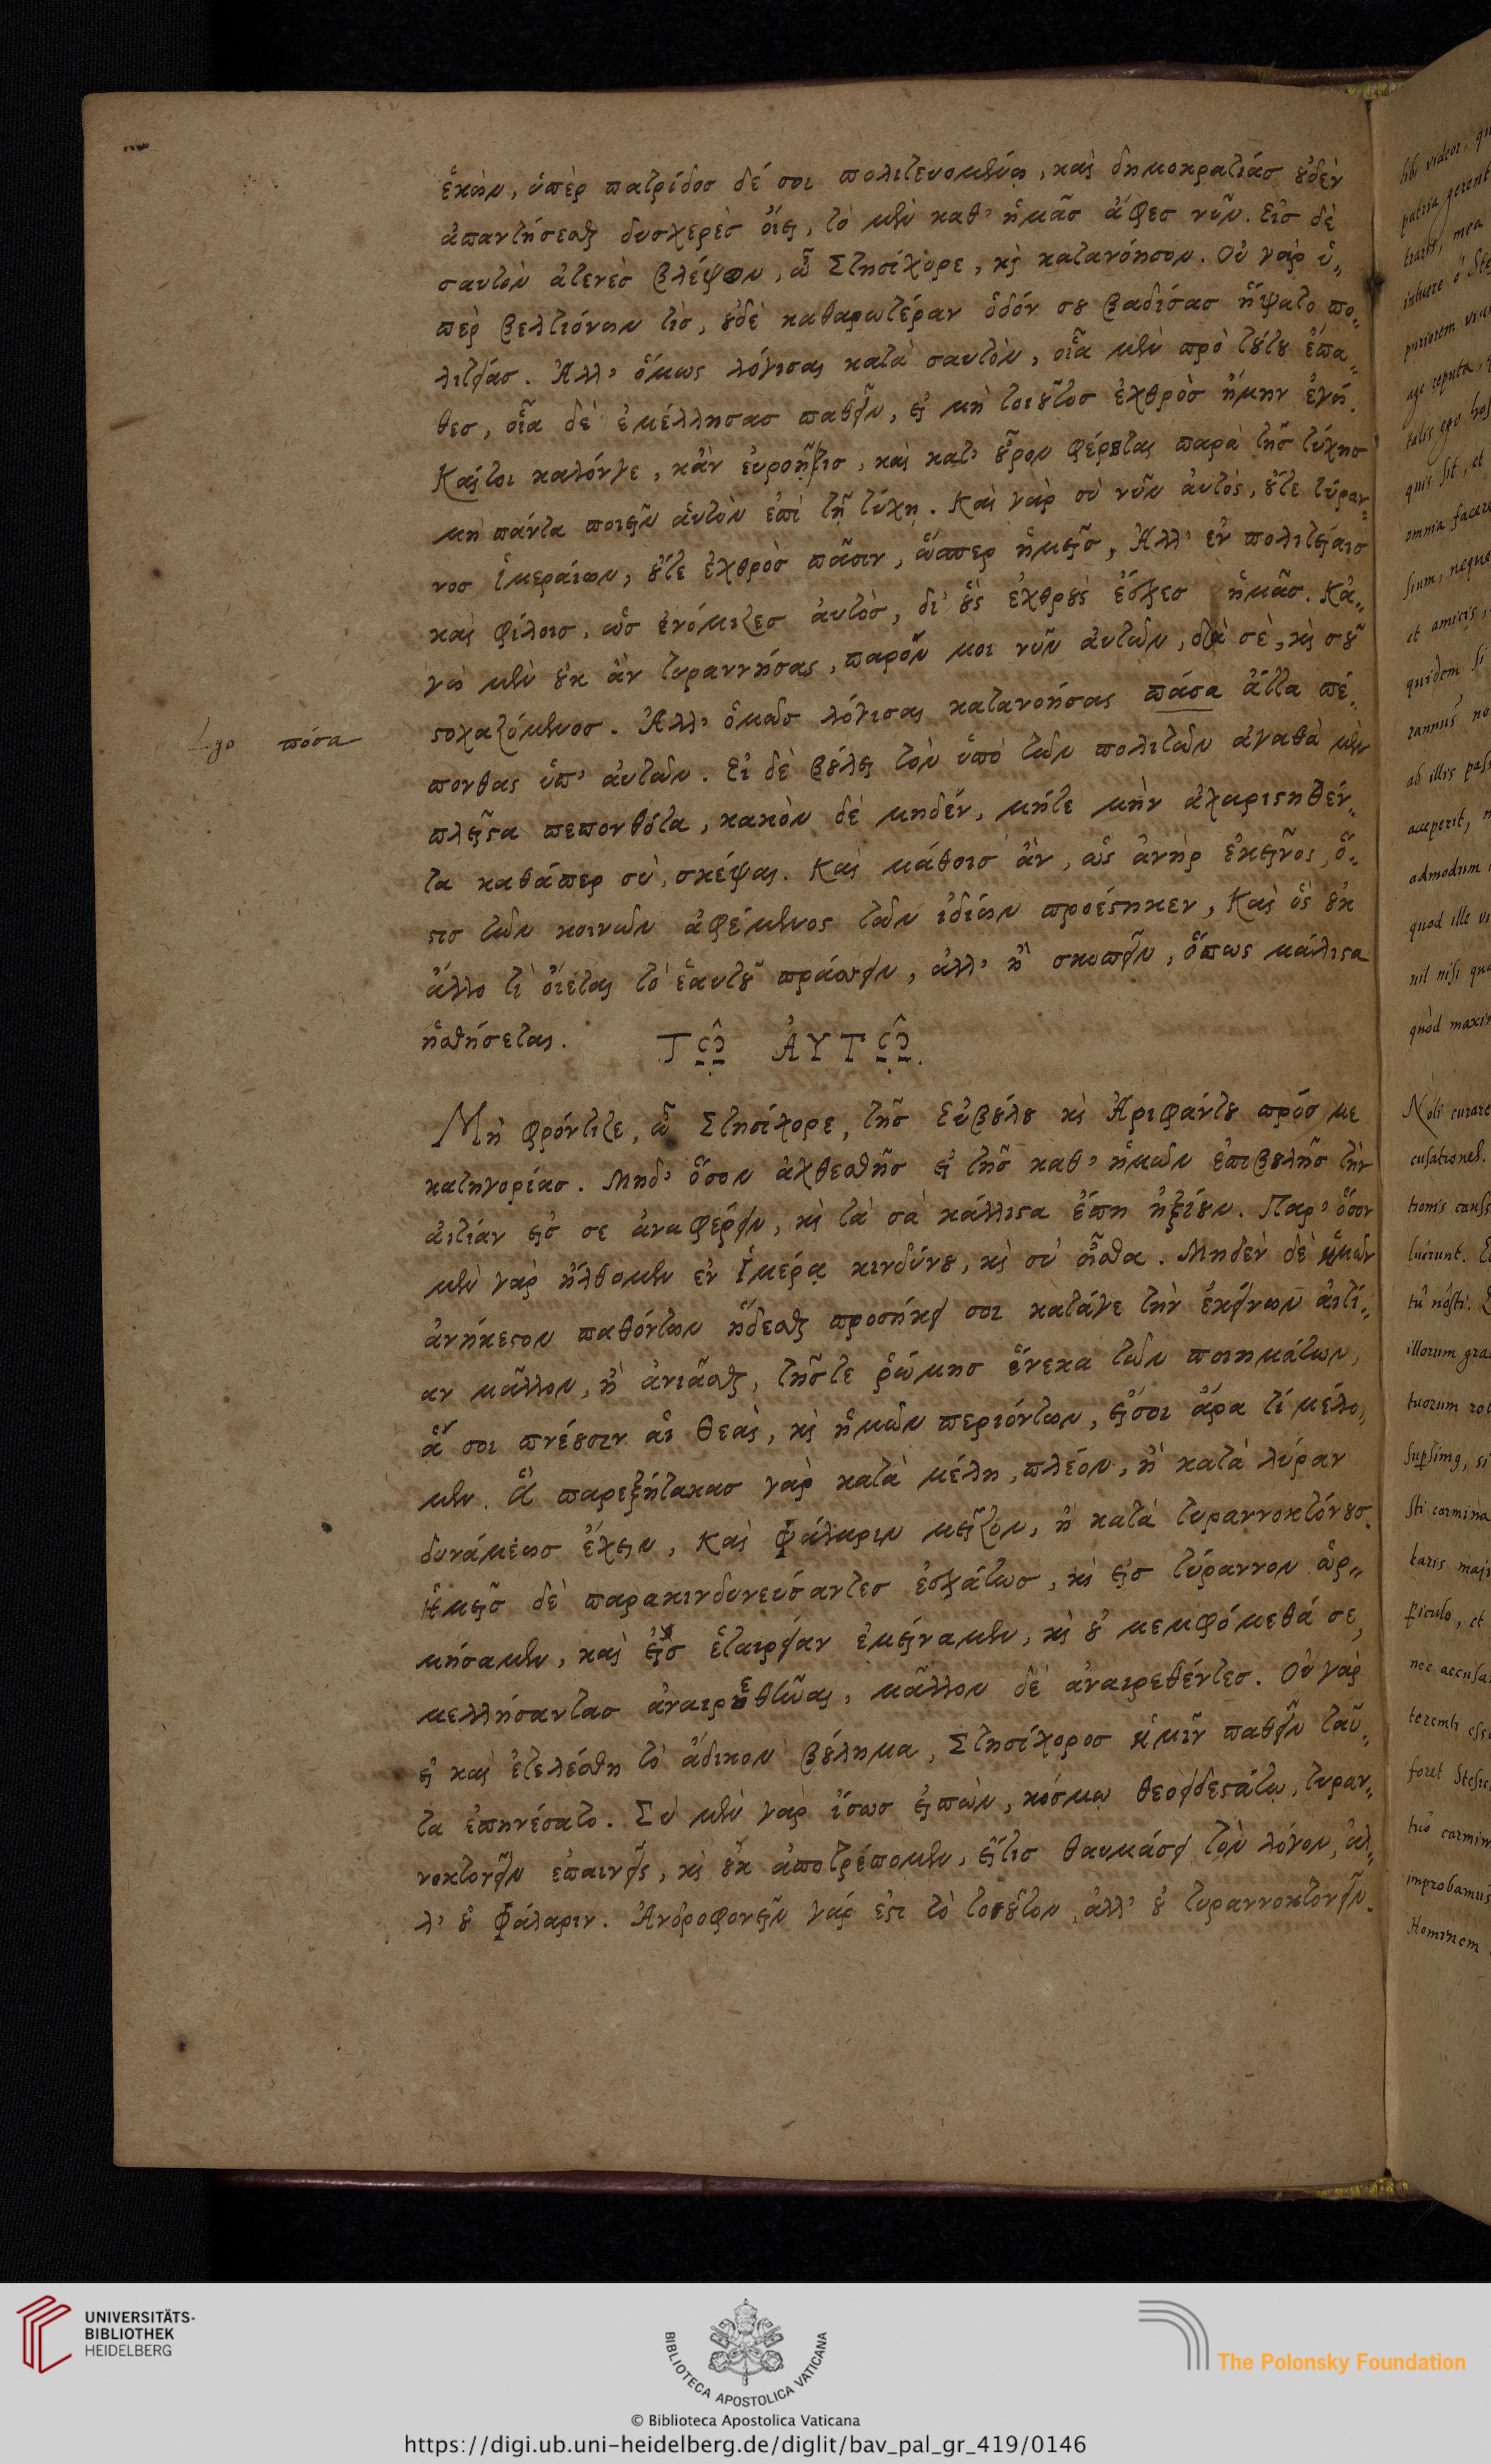 ἑκὼν, ὑπὲρ πατρίδος δέ σοι πολιτευομένῳ, καὶ δημοκρατίας οὐδὲν
ἀπαντήσεσθαι δυσχερὲς οἴει, τὸ μὲν καθ' ἡμᾶς ἄφες νῦν. Εἰς δὲ
σαυτὸν ἀτενὲς βλέψον, ὦ Στησίχορε, καὶ κατανόησον. Οὐ γὰρ ὑ„
πὲρ βελτιόνων τὶς, οὐδὲ καθαρωτέραν ὁδόν σου βαδίσας ἥψατο πο„
λιτείας. Ἀλλ' ὅμως λόγισαι κατὰ σαυτὸν, οἷα μὲν πρὸ τούτου ἔπα„
θες, οἷα δὲ ἐμέλλησας παθεῖν, εἰ μὴ τοιοῦτος ἐχθρὸς ἤμην ἐγώ.
Καίτοι καλόνγε, κἂν εὐροῇ τις, καὶ κατ' οὖρον φέρηται παρὰ τῆς τύχης
μὴ πάντα ποιεῖν αὑτὸν ἐπὶ τῇ τύχῃ. Καὶ γὰρ σὺ νῦν αὐτὸς, οὔτε τύραν„
νος Ἱμεραίων, οὔτε ἐχθρὸς πᾶσιν, ὥσπερ ἡμεῖς, Ἀλλ' ἐν πολιτείαις
καὶ φίλοις, ὡς ἐνόμιζες αὐτὸς, δι' οὓς ἐχθροὺς ἔσχες ἡμᾶς. Κἀ„
γὼ μὲν οὐκ ἂν τυραννήσαι, παρὸν μοι νῦν αὐτῶν, διὰ σὲ, καὶ σοῦ
στοχαζόμενος. Ἀλλ' ὁμῶς λόγισαι κατανοήσας πάσα ἄττα πέ„
πονθας ὑπ' αὐτῶν. Εἰ δὲ βούλει τὸν ὑπὸ τῶν πολιτῶν ἀγαθὰ μὲν
Lego πόσα
πλεῖστα πεπονθότα, κακὸν δὲ μηδέν, μήτε μὴν ἀχαριστηθέν„
τα καθάπερ σὺ, σκέψαι. Καὶ μάθοις ἂν, ὡς ἀνὴρ ἐκεῖνος, ὅ„
στις τῶν κοινῶν ἀφέμενος τῶν ἰδίων προέστηκεν, Καὶ ὃς οὐκ
ἄλλο τὶ οἴεται τὸ ἑαυτοῦ πράσσειν, ἀλλ' ἢ σκοπεῖν, ὅπως μάλιστα
ἡσθήσεται.
ΤΩ͂ ἈΥΤΩ͂.
Μὴ φρόντιζε, ὦ Στησίχορε, τῆς Εὐβούλου καὶ Ἀριφάντου πρός με
κατηγορίας. Μηδ' ὅσον ἀχθεσθῇς εἰ τῆς καθ' ἡμῶν ἐπιβουλῆς τὴν
αἰτίαν εἰς σε ἀναφέρειν, καὶ τὰ σὰ κάλλιστα ἔπη ἠξίουν. Παρ' ὅσον
μὲν γὰρ ἤλθομεν ἐν Ἱμέρᾳ κινδύνου, καὶ σὺ οἶσθα. Μηδὲν δὲ ἡμῶν
ἀνήκεστον παθόντων ἥδεσθαι προσήκει σοι κατάγε τὴν ἐκείνων αἰτί„
αν μᾶλλον, ἢ ἀνιᾶσθαι, τῆςτε ῥώμης ἕνεκα τῶν ποιημάτων,
ἅ σοι πνέουσιν αἱ θεαὶ, καὶ ἡμῶν περιόντων, εἴσοι ἄρα τί μέλο„
μεν. Ἃ παρεξήτακας γὰρ κατὰ μέλη, πλέον, ἢ κατὰ λύραν
δυνάμεως ἔχειν, Καὶ Φάλαριν μεῖζον, ἢ κατὰ τυραννοκτόνους.
Ἡμεῖς δὲ παρακινδυνεύσαντες ἐσχάτως, καὶ εἰς τύραννον ὡρ„
μήσαμεν, καὶ εἰς ἑταιρείαν ἐμείναμεν, καὶ οὐ μεμφόμεθά σε,
μελλήσαντας ἀναιρεθῆναι, μᾶλλον δὲ ἀναιρεθέντες. Οὐ γὰρ
εἰ καὶ ἐτελέσθη τὸ ἄδικον βούλημα, Στησίχορος ἡμῖν παθεῖν ταῦ„
τα ἐπηνέσατο. Σὺ μὲν γὰρ ἴσως εἰπὼν, κόσμῳ θεοειδεστάτῳ, τυραν„
νοκτονεῖν ἐπαινεῖς, καὶ οὐκ ἀποτρέπομεν, εἴτις θαυμάσει τὸν λόγον, ἀλ„
λ' οὐ Φάλαριν. Ἀνδροφονεῖν γάρ ἐστι τὸ τοιοῦτον, ἀλλ' οὐ τυραννοκτονεῖν.
tibi videor, qu
patria gerent
traris, mea
intuere ô Ste
puriorem via
age reputa,
talis ego hos
quis sit, et
omnia facere
sium, neque
et amicis,
quidem si
rannus no
ab illis pass
acceperit, n
admodum
quod ille vi
nil nisi qua
quòd maxim
Noli curare
cusationes.
tionis causs
luerunt. E
illorum gra
tuorum rob
sti carmina
taris maio
periculo, et
nec accusa
foret Stesic
tuo carmin
improbamus
Hominem
UNIVERSITÄTS-
BIBLIOTHEK
HEIDELBERG
BIBLIOTECA APOSTOLICA VATICANA
The Polonsky Foundation
© Biblioteca Apostolica Vaticana
https://digi.ub.uni-heidelberg.de/diglit/bav_pal_gr_419/0146